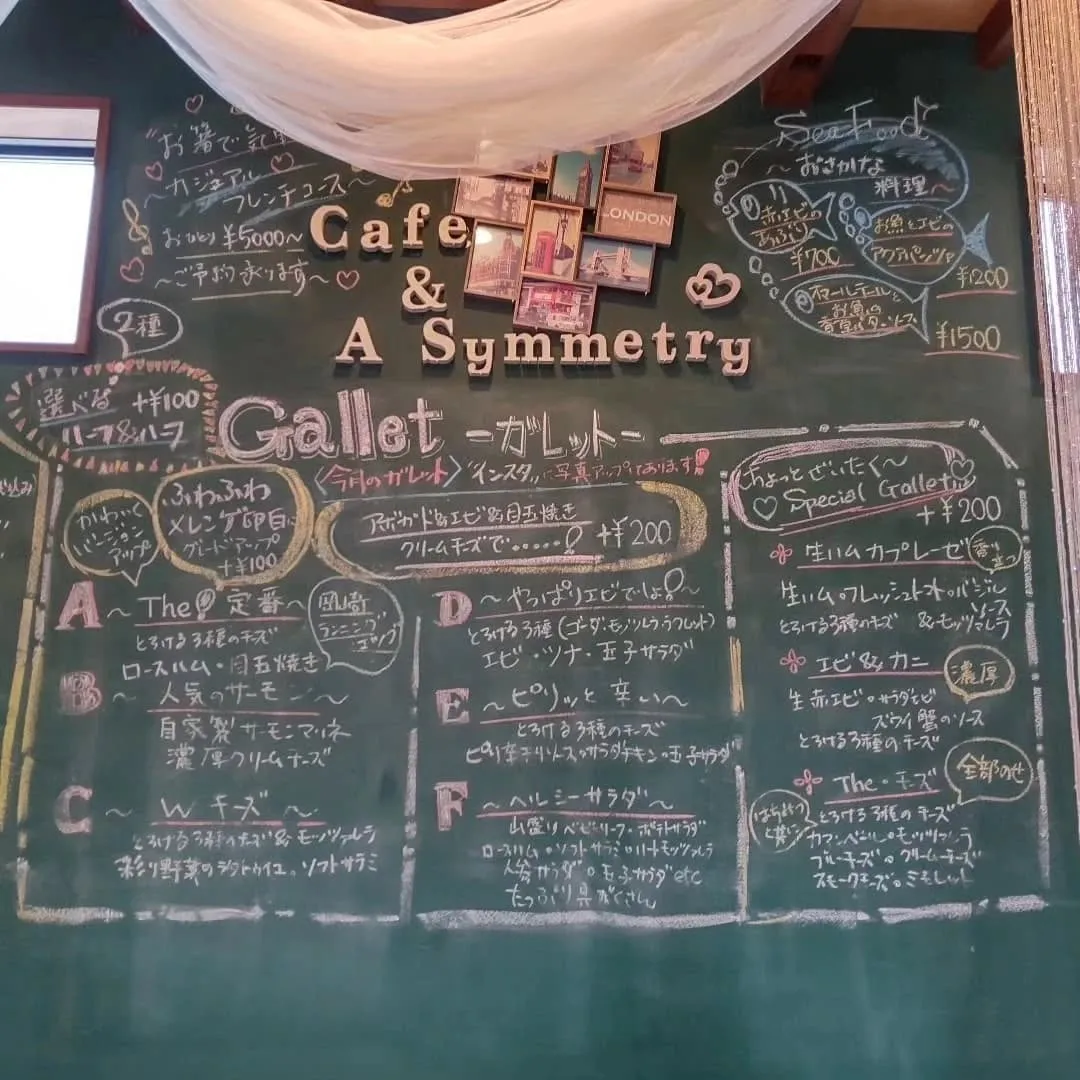 "お箸で気
カジュアル
フレンチコース〜
おひとり ¥5000〜
〜ご予約承ります〜
Cafe
&
A Symmetry
LONDON
Sea Food
〜おさかな
料理〜
赤エビの
あぶり
¥700
お魚とエビの
アクアパッツァ
¥1200
オマールテールと
お魚の
¥1500
2種
選べる +¥100
ハーフ&ハーフ
Gallet -ガレット-
〈今月のガレット〉"インスタ"に写真アップしてあります!
アボカド&エビ&目玉焼き
クリームチーズで.....! +¥200
かわいく
バージョン
アップ
ふわふわ
メレンゲ卵白に
グレードアップ
+¥100
A 〜The!定番〜
とろける3種のチーズ
ロースハム・目玉焼き
ランニング
エッグ
B 〜人気のサーモン〜
自家製サーモンマリネ
濃厚クリームチーズ
C 〜Wチーズ〜
とろける3種のチーズ&モッツァレラ
彩り野菜のラタトゥイユ。ソフトサラミ
D 〜やっぱりエビでしょ!〜
とろける3種
エビ・ツナ・玉子サラダ
E 〜ピリッと辛い〜
とろける3種のチーズ
ピリ辛チリソース。サラダチキン。玉子サラダ
F 〜ヘルシーサラダ〜
山盛りベビーリーフ・ポテトサラダ
ロースハム。ソフトサラミ。ハートモッツァレラ
人参サラダ。玉子サラダetc
たっぷり具だくさん
ちょっとぜいたく〜
Special Gallet
+¥200
生ハムカプレーゼ
生ハム。フレッシュトマト。バジル
ソース
とろける3種のチーズ &モッツァレラ
エビ&カニ
濃厚
生赤エビ。サラダエビ
ズワイ蟹のソース
とろける3種のチーズ
The・チーズ
全部のせ
はちみつ
と共に
とろける3種のチーズ
カマンベール。モッツァレラ
ブルーチーズ。クリームチーズ
スモークチーズ。ミモレット